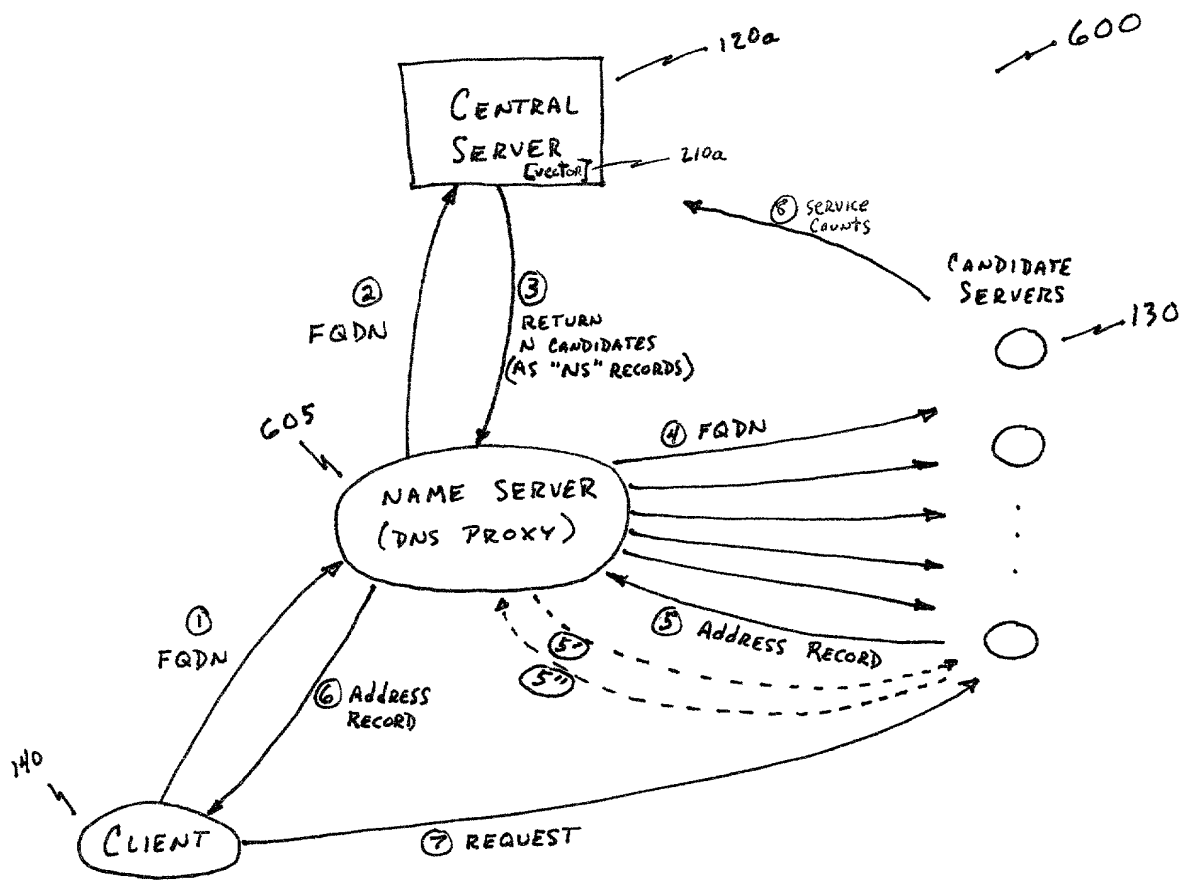 120a
600
CENTRAL
SERVER
[VECTOR]
210a
⑧ SERVICE
COUNTS
CANDIDATE
SERVERS
130
②
FQDN
③
RETURN
N CANDIDATES
(AS "NS" RECORDS)
605
④ FQDN
NAME SERVER
(DNS PROXY)
①
FQDN
⑤ ADDRESS RECORD
5'
5"
⑥ ADDRESS
RECORD
140
CLIENT
⑦ REQUEST